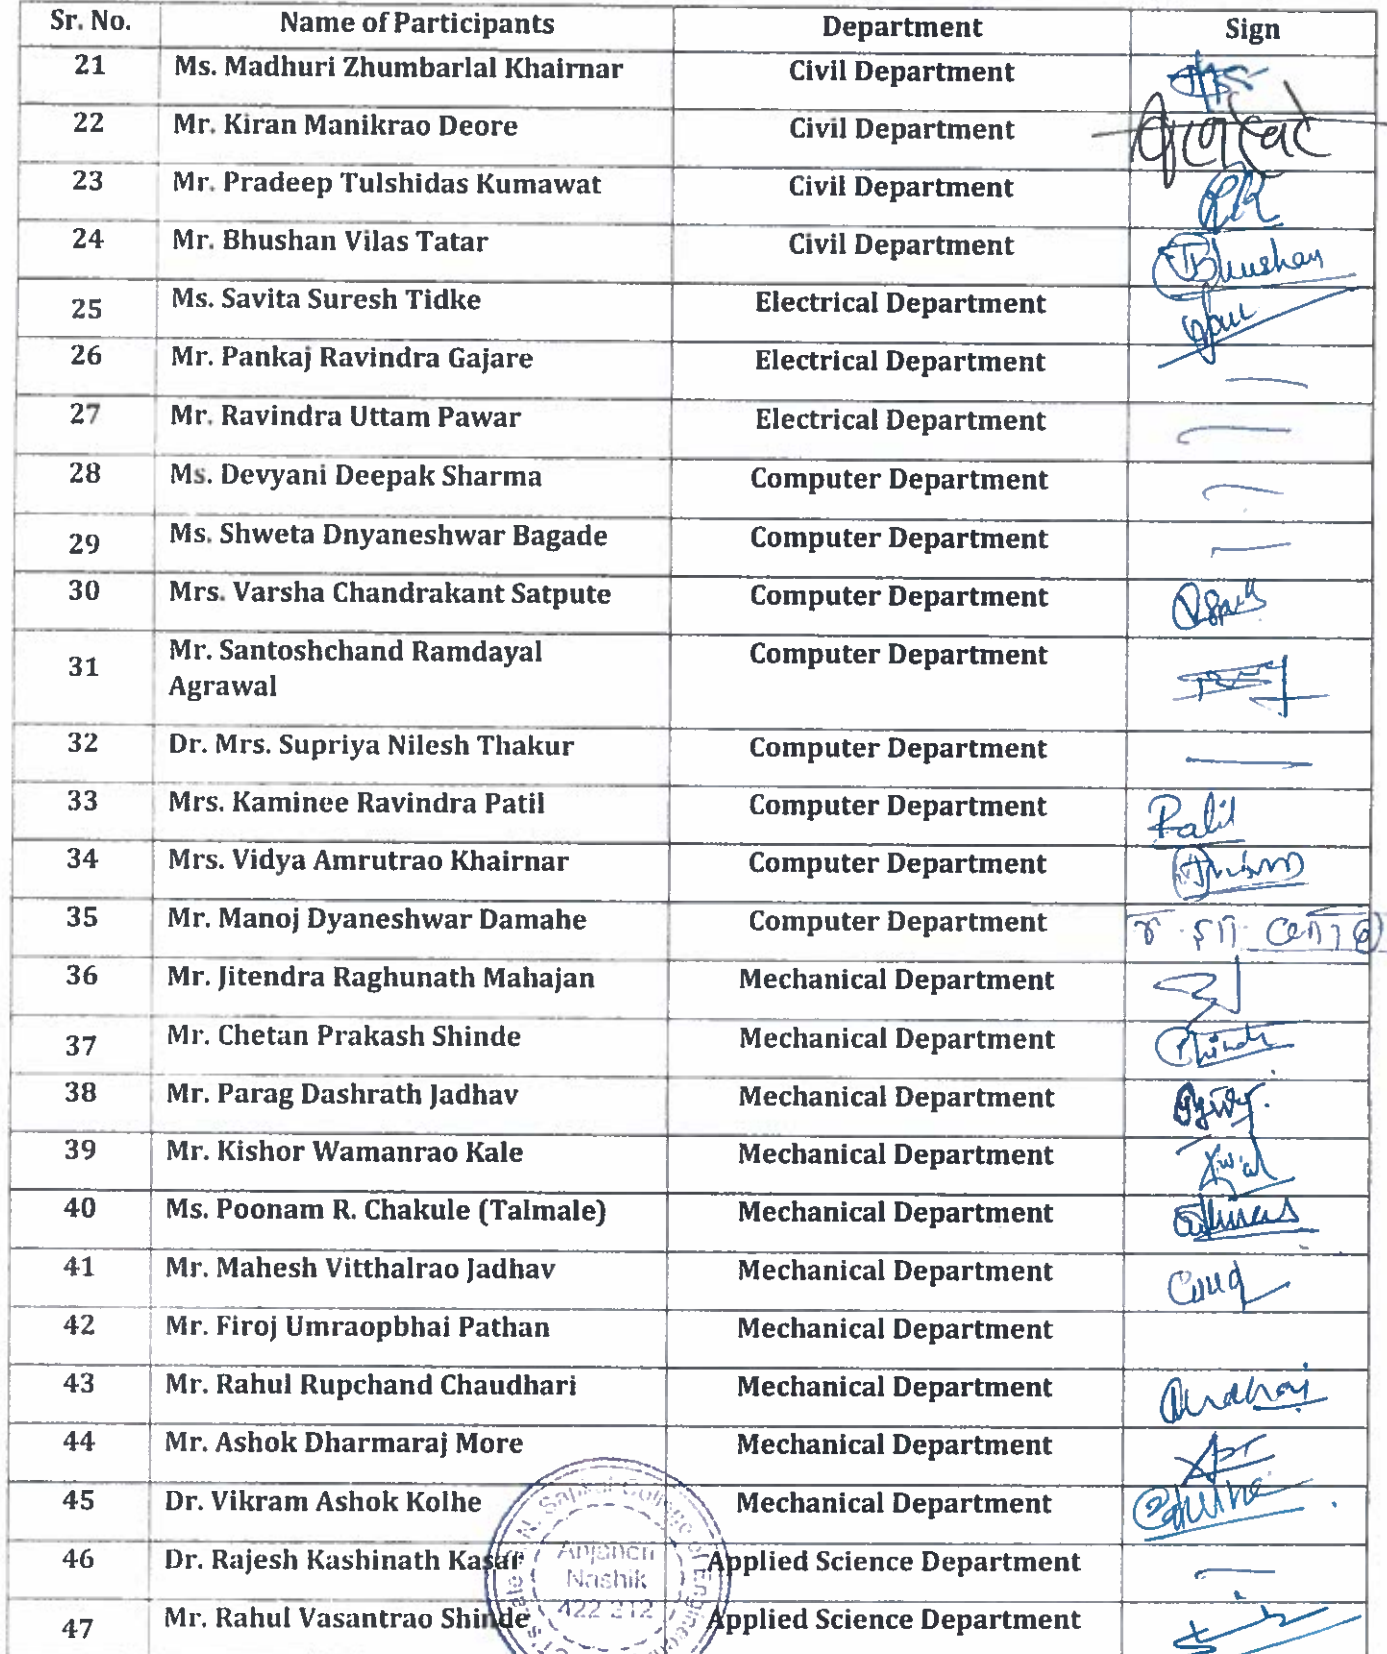 Sr. No. Name of Participants Department Sign
21 Ms. Madhuri Zhumbarlal Khairnar Civil Department
22 Mr. Kiran Manikrao Deore Civil Department
23 Mr. Pradeep Tulshidas Kumawat Civil Department
24 Mr. Bhushan Vilas Tatar Civil Department Bhushan
25 Ms. Savita Suresh Tidke Electrical Department
26 Mr. Pankaj Ravindra Gajare Electrical Department
27 Mr. Ravindra Uttam Pawar Electrical Department
28 Ms. Devyani Deepak Sharma Computer Department
29 Ms. Shweta Dnyaneshwar Bagade Computer Department
30 Mrs. Varsha Chandrakant Satpute Computer Department
31 Mr. Santoshchand Ramdayal Computer Department
Agrawal
32 Dr. Mrs. Supriya Nilesh Thakur Computer Department
33 Mrs. Kaminee Ravindra Patil Computer Department Patil
34 Mrs. Vidya Amrutrao Khairnar Computer Department
35 Mr. Manoj Dyaneshwar Damahe Computer Department
36 Mr. Jitendra Raghunath Mahajan Mechanical Department
37 Mr. Chetan Prakash Shinde Mechanical Department
38 Mr. Parag Dashrath Jadhav Mechanical Department
39 Mr. Kishor Wamanrao Kale Mechanical Department
40 Ms. Poonam R. Chakule (Talmale) Mechanical Department
41 Mr. Mahesh Vitthalrao Jadhav Mechanical Department
42 Mr. Firoj Umraopbhai Pathan Mechanical Department
43 Mr. Rahul Rupchand Chaudhari Mechanical Department
44 Mr. Ashok Dharmaraj More Mechanical Department
45 Dr. Vikram Ashok Kolhe Mechanical Department
46 Dr. Rajesh Kashinath Kasar Applied Science Department
47 Mr. Rahul Vasantrao Shinde Applied Science Department
N. Sapkal College of Engineering
Anjaneri
Nashik
422 212